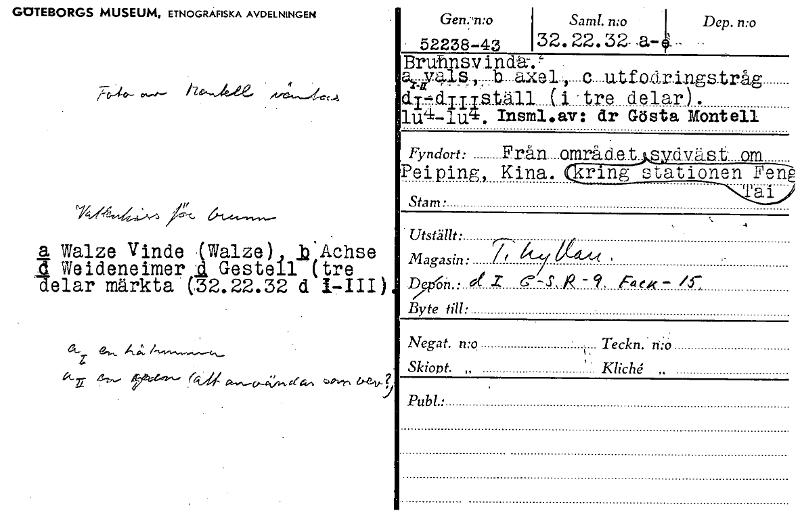 GÖTEBORGS MUSEUM, ETNOGRÁFISKA AVDELNINGEN
Foto av Montell väntas
Vattenhiss för brunn
a Walze Vinde (Walze), b Achse
d Weideneimer d Gestell (tre
delar märkta (32.22.32 d I-III).
a I en
a II en (att användas som vev?)
Gen. n:o
52238-43
Saml. n:o
32.22.32 a-e
Dep. n:o
Brunnsvinda.
a vals, b axel, c utfodringstråg
I-II
dI-dIII ställ (i tre delar).
1u4-1u4. Insml.av: dr Gösta Montell
Fyndort: Från området sydväst om
Peiping, Kina. (kring stationen Feng
Tai
Stam:
Utställt:
Magasin: T. hyllan.
Depon.: d I G-S.R-9. Fack-15.
Byte till:
Negat. n:o
Teckn. n:o
Skiopt. „
Kliché „
Publ.: